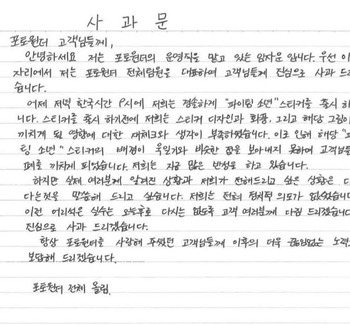 사 과 문
포토원더 고객님들께,
안녕하세요 저는 포토원더의 운영직을 맡고 있는 임자운 입니다. 우선 이
자리에서 저는 포토원더 전체팀원을 대표하여 고객님들께 진심으로 사과 드리
습니다.
어제 저녁 한국시간 P시에 저희는 경솔하게 "파이팅 소년"스티커를 출시 하
니다. 스티커를 출시 하기전에 저희는 스티커 디자인과 화풍, 그리고 해당 그림이
끼치게 될 영향에 대한 재체크와 생각이 부족하였습니다. 이로 인해 해당 "파
팅 소년"스티커의 배경이 욱일기와 비슷한 점을 보아내지 못하여 고객님들
폐를 끼치게 되었습니다. 저희는 지금 많은 반성을 하고 있습니다.
하지만 실제 여러분께 알려진 상황과 저희가 전해드리고 싶은 상황은 다
다른것을 말씀해 드리고 싶습니다. 저희는 전혀 정치적 의도가 없었습니
이런 어리석은 실수는 앞으로 다시는 없도록 고객 여러분께 다짐 드리겠습니
진심으로 사과 드리겠습니다.
항상 포토원더를 사랑해 주셨던 고객님들께 이후의 더욱 끊임없는 노력
보답해 드리겠습니다.
포토원더 전체 올림.